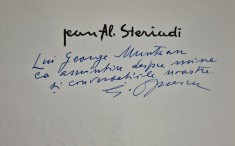 jean Al. Steriadi
Lui George Muntean
ca amintire despre mine
și conversațiile noastre
G. Oprescu